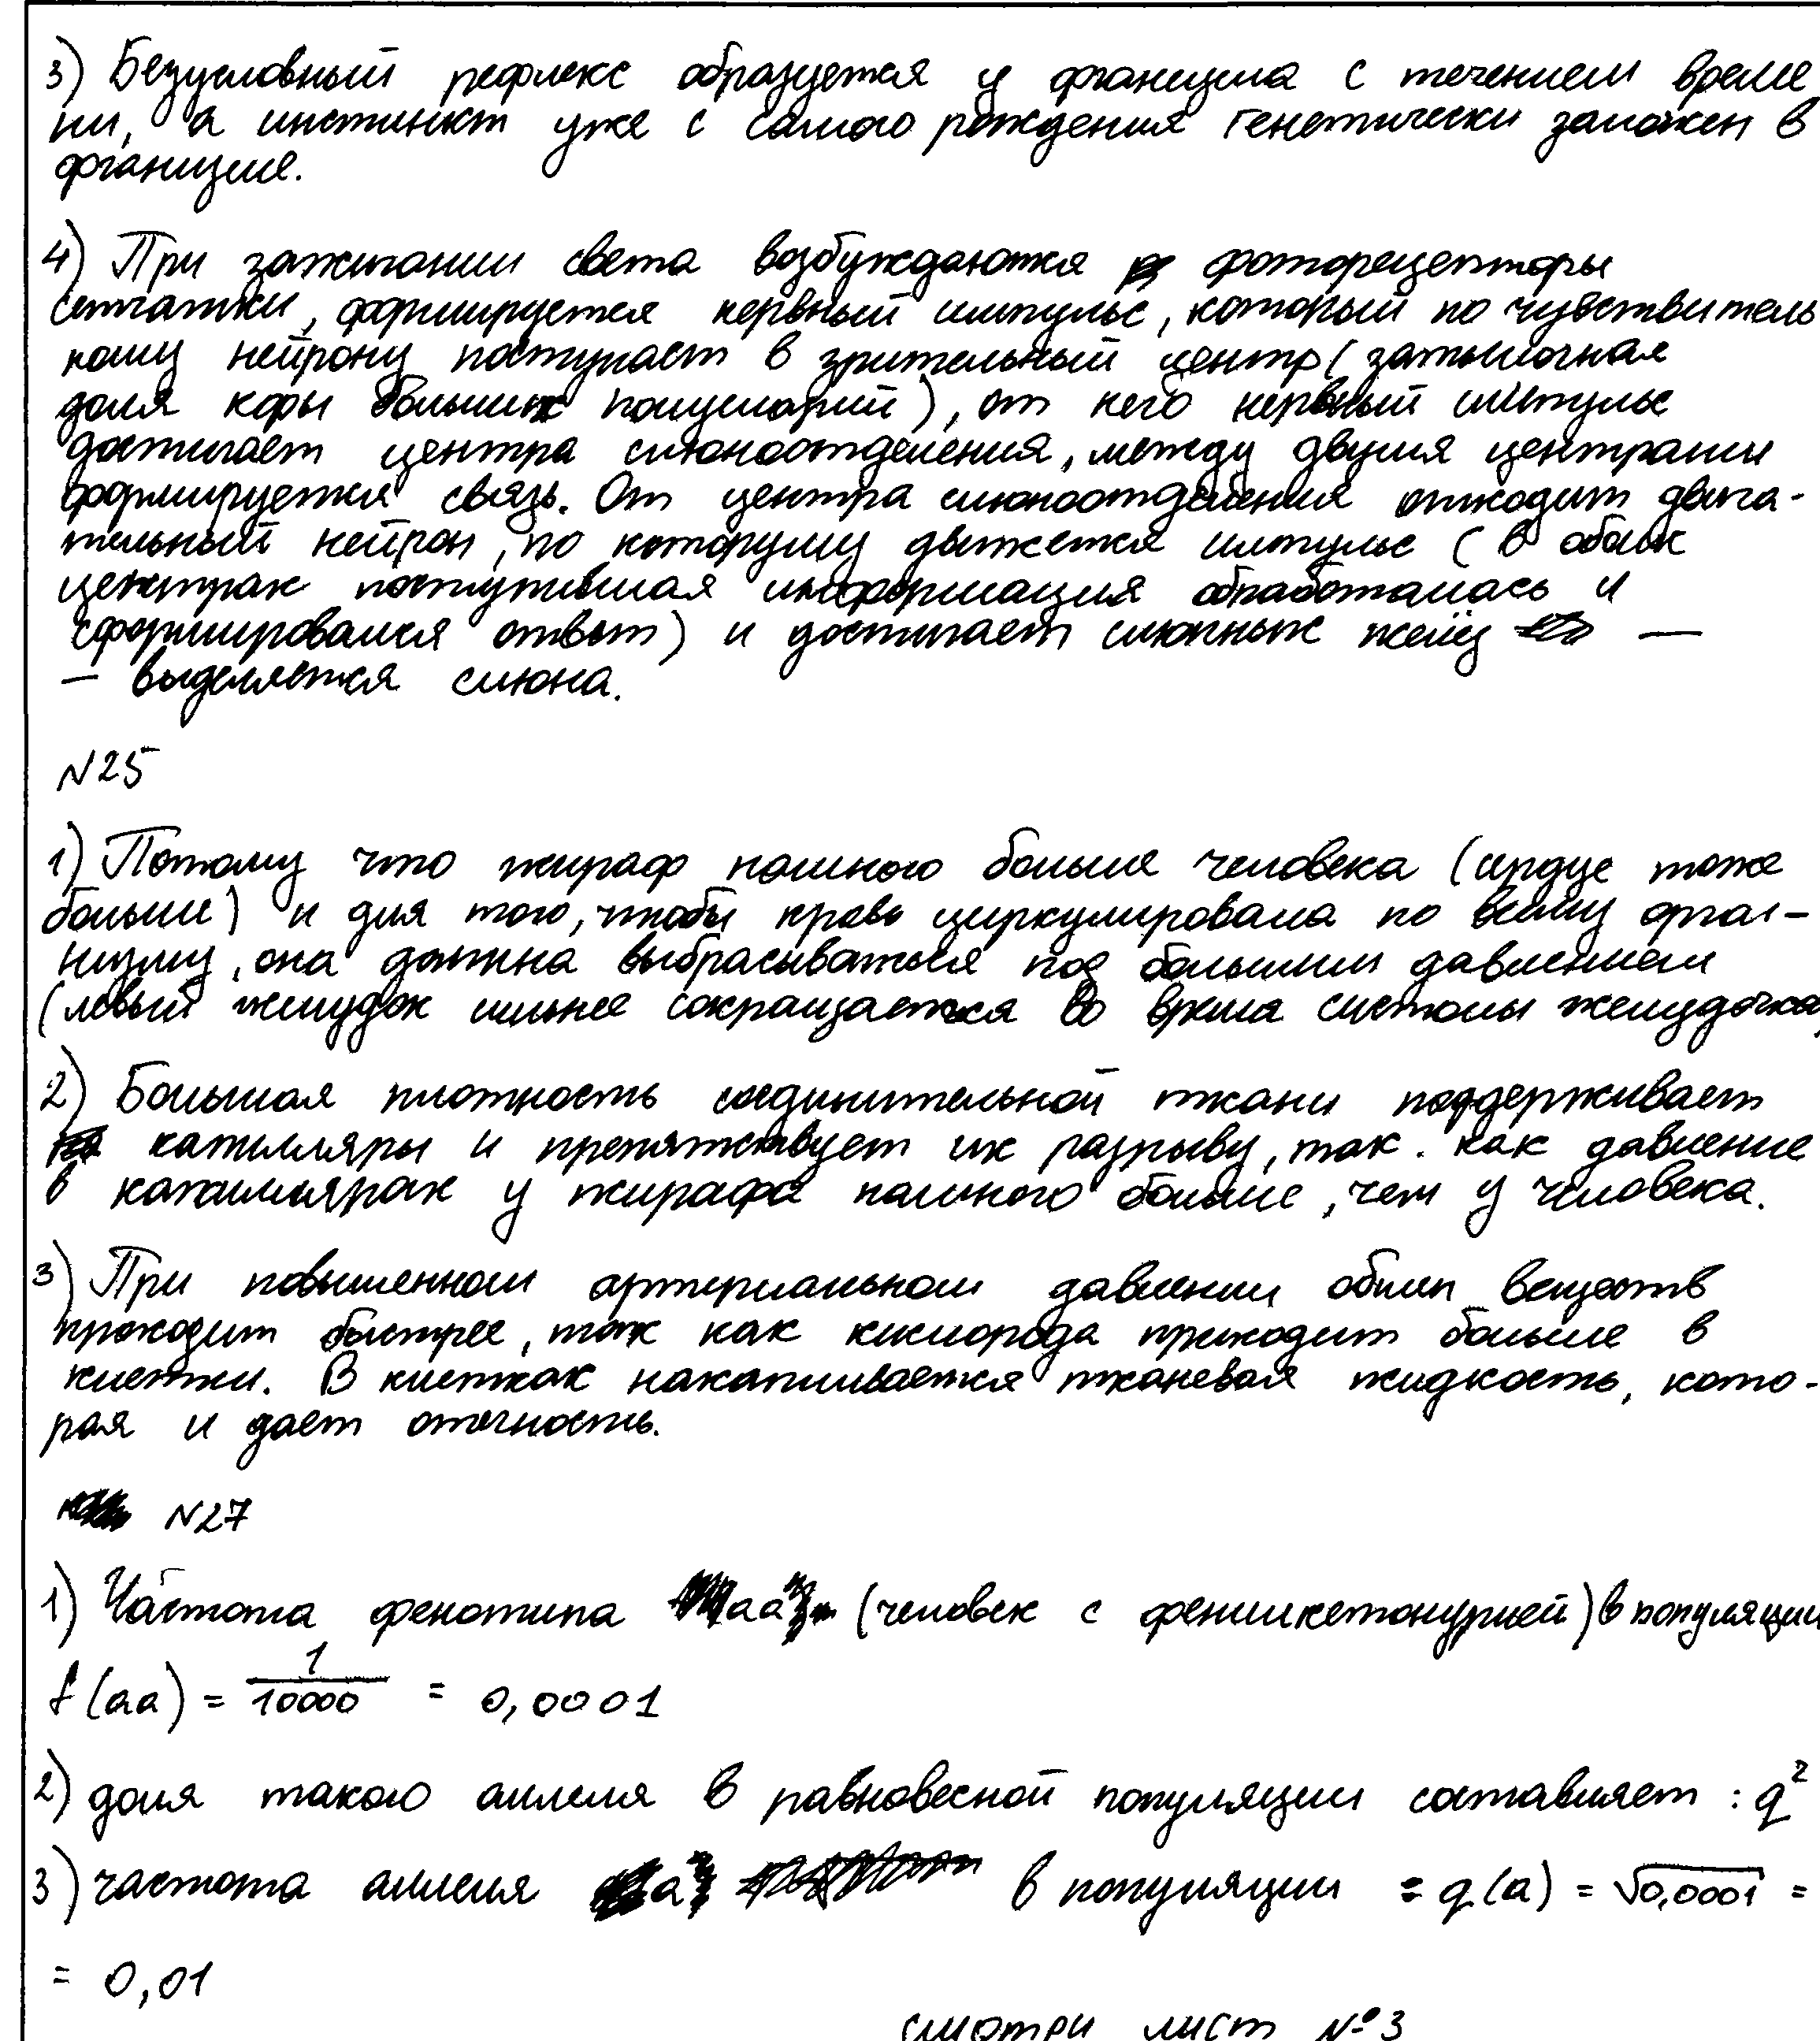 3) Безусловный рефлекс образуется у организма с течением време
ни, а инстинкт уже с самого рождения генетически заложен в
организме.
4) При зажигании света возбуждаются фоторецепторы
сетчатки, формируется нервный импульс, который по чувствитель
ному нейрону поступает в зрительный центр (затылочная
доля коры больших полушарий), от него нервный импульс
достигает центра слюноотделения, между двумя центрами
формируется связь. От центра слюноотделения отходит двига-
тельный нейрон, по которому движется импульс (в обоих
центрах поступившая информация обработалась и
сформировался ответ) и достигает слюнных желёз —
— выделяется слюна.
N25
1) Потому что жираф намного больше человека (сердце тоже
больше) и для того, чтобы кровь циркулировала по всему орга-
низму, она должна выбрасываться под большим давлением
(левый желудок сильнее сокращается во время систолы желудочка)
2) Большая плотность соединительной ткани поддерживает
капилляры и препятствует их разрыву, так. как давление
в капиллярах у жирафа намного больше, чем у человека.
3) При повышенном артериальном давлении обмен веществ
проходит быстрее, так как кислорода приходит больше в
клетки. В клетках накапливается тканевая жидкость, кото-
рая и дает отечность.
N27
1) Частота фенотипа aa (человек с фенилкетонурией) в популяции
f(aa) = 1/10000 = 0,0001
2) доля такого аллеля в равновесной популяции составляет : q²
3) частота аллеля a в популяции = q(a) = √0,0001 =
= 0,01
смотри лист №3